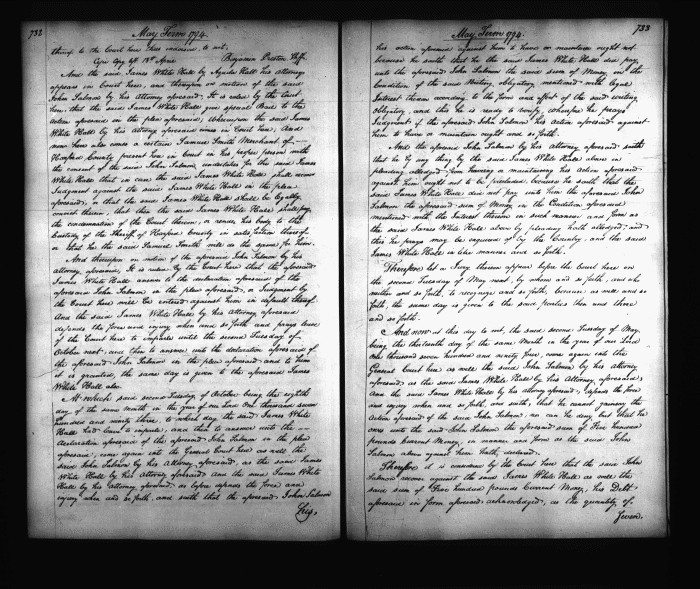 732
May Term 1794.
thereup to the Court here thus endorsed, to wit.
Copi Opg aft 18th April Benjamin Preston Shff
And the said James White Hall by Aquila Hall his attorney
appears in Court here, and thereupon on motion of the said
John Salmon by his attorney aforesaid; It is ruled by the Court
here that the said James White Hall give special Bail to the
action aforesaid in the plea aforesaid, whereupon the said James
White Hall by his Attorney aforesaid comes in Court here, And
now here also comes a certain Samuel Smith Merchant of
Harford County present here in Court in his proper person with
the consent of the said John Salmon, undertakes for the said James
White Hall that in case the said James White Hall shall occur
Judgment against the said James White Hall in the plea
aforesaid, or that the said James White Hall shall be legally
convict therein, that then the said James White Hall shall pay
the condemnation of the Court therein, or render his body to the
Custody of the Sheriff of Harford County in satisfaction thereof,
or that he the said Samuel Smith will do the same for him.
And thereupon on motion of the aforesaid John Salmon by his
attorney aforesaid, It is ruled by the Court here that the aforesaid
James White Hall answer to the declaration aforesaid of the
aforesaid John Salmon in the plea aforesaid, or Judgment by
the Court here will be entered against him in default thereof.
And the said James White Hall by his Attorney aforesaid
defends the force and injury when and so forth and prays leave
of the Court here to imparle until the second Tuesday of
October next, and then to answer unto the declaration aforesaid of
the aforesaid John Salmon in the plea aforesaid and to him
it is granted, the same day is given to the aforesaid James
White Hall also.
At which said second Tuesday of October being the eighth
day of the same month in the year of our Lord One thousand seven
hundred and ninety three, to which day the said James White
Hall had Court to imparle, and then to answer unto the
declaration aforesaid of the aforesaid John Salmon in the plea
aforesaid, come again into the General Court here as well the
said John Salmon by his Attorney aforesaid, as the same James
White Hall by his attorney aforesaid and the said James White
Hall by his attorney aforesaid, as before defends the force and
injury when and so forth, and saith that the aforesaid John Salmon
his,
May Term 1794.
733
his action aforesaid against him to have or maintain ought not
because he saith that he the said James White Hall did pay
unto the aforesaid John Salmon the said sum of Money, in the
Condition of the said Writing obligatory mentioned with legal
Interest thereon according to the form and effect of the said writing
obligatory, and this he is ready to verify, wherefore he prays
Judgment if the aforesaid John Salmon his action aforesaid against
him to have or maintain ought and so forth.
And the aforesaid John Salmon by his Attorney aforesaid saith
that he by any thing by the said James White Hall above in
pleading alledged, from having or maintaining his action aforesaid
against him ought not to be precluded, because he saith that the
said James White Hall did not pay unto him the aforesaid John
Salmon the aforesaid sum of Money in the Condition aforesaid
mentioned with the Interest thereon in such manner and form as
the said James White Hall above by pleading hath alledged; and
this he prays may be enquired of by the Country, and the said
James White Hall in like manner and so forth.
Therefore let a Jury thereon appear before the Court here on
the second Tuesday of May next, by whom and so forth, and who
neither and so forth, to recognize and so forth, because as well and so
forth, the same day is given to the said parties then and there
and so forth.
And now at this day to wit, the said second Tuesday of May,
being the thirteenth day of the same Month in the year of our Lord
One thousand seven hundred and ninety four, come again into the
General Court here as well the said John Salmon by his attorney
aforesaid, as the said James White Hall by his Attorney aforesaid;
And the said James White Hall by his attorney aforesaid, defends the force
and injury when and so forth, and saith, that he cannot gainsay the
action aforesaid of the said John Salmon, nor can he deny but that he
owes unto the said John Salmon the aforesaid sum of Five hundred
pounds Current Money, in manner and form as the said John
Salmon above against him hath declared.
Therefore it is considered by the Court here that the said John
Salmon recover against the said James White Hall as well the
said sum of Five hundred pounds Current Money, his Debt
aforesaid in form aforesaid acknowledged, as the quantity of
Seven